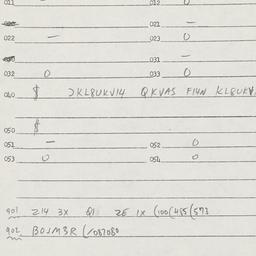 011 — 012 0
021 —
022 — 023 0
031 —
032 0 033 0
040 $ JKL8UKV14 QKVAS F14N KL8UKV
050 $
051 — 052 0
053 0 054 0
901 Z14 3X Q1 2E 1X (100(485(573
902 BOJM3R (/087080